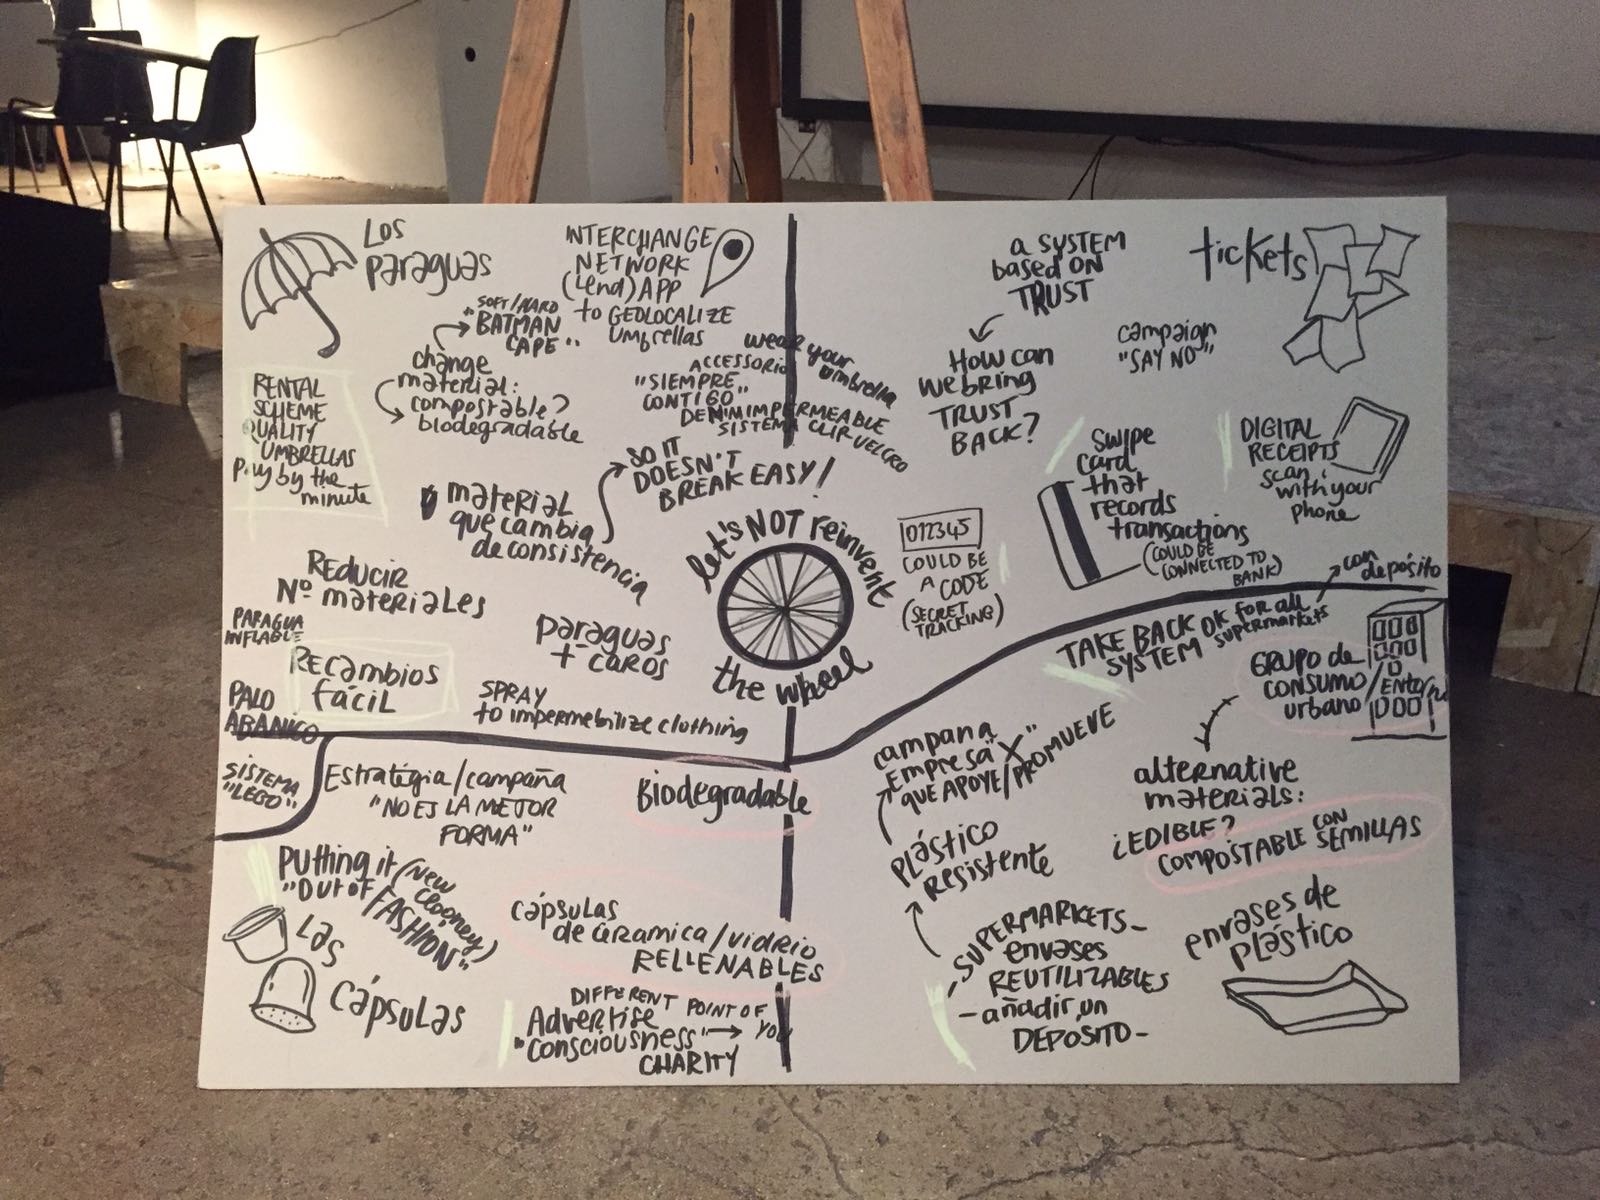 Los
paraguas
INTERCHANGE
NETWORK
(lend) APP
to GEOLOCALIZE
umbrellas
"SOFT/HARD
BATMAN
CAPE"
change
material:
compostable?
biodegradable
RENTAL
SCHEME
QUALITY
UMBRELLAS
pay by the
minute
wear your
umbrella
ACCESSORIO
"SIEMPRE
CONTIGO"
DENIM IMPERMEABLE
SISTEMA CLIP VELCRO
SO IT
DOESN'T
BREAK EASY!
material
que cambia
de consistencia
REDUCIR
Nº materiales
PARAGUA
INFLABLE
RECAMBIOS
fácil
paraguas
+ caros
PALO
ABANICO
SPRAY
to impermebilize clothing
SISTEMA
"LEGO"
let's NOT reinvent
the wheel
a SYSTEM
based ON
TRUST
tickets
campaign
"SAY NO"
HOW can
we bring
TRUST
BACK?
swipe
card
that
records
transactions
(COULD BE
CONNECTED TO
BANK)
DIGITAL
RECEIPTS
scan
with your
phone
012345
COULD BE
A CODE
(SECRET
TRACKING)
con
depósito
TAKE BACK OK for all
SYSTEM supermarkets
GRUPO de
CONSUMO
urbano
campana
EMPRESA "X"
QUE APOYE/PROMUEVE
alternative
materials:
¿EDIBLE?
COMPOSTABLE CON
SEMILLAS
PLÁSTICO
RESISTENTE
-SUPERMARKETS-
envases
REUTILIZABLES
- añadir un
DEPOSITO -
envases de
plástico
Estratégia/campaña
"NO ES LA MEJOR
FORMA"
Biodegradable
Putting it
"OUT OF
FASHION"
(New
Clooney)
LAS
Cápsulas
cápsulas
de ceramica/vidrio
RELLENABLES
DIFFERENT POINT OF
Advertise
"CONSCIOUSNESS" → YOU
CHARITY